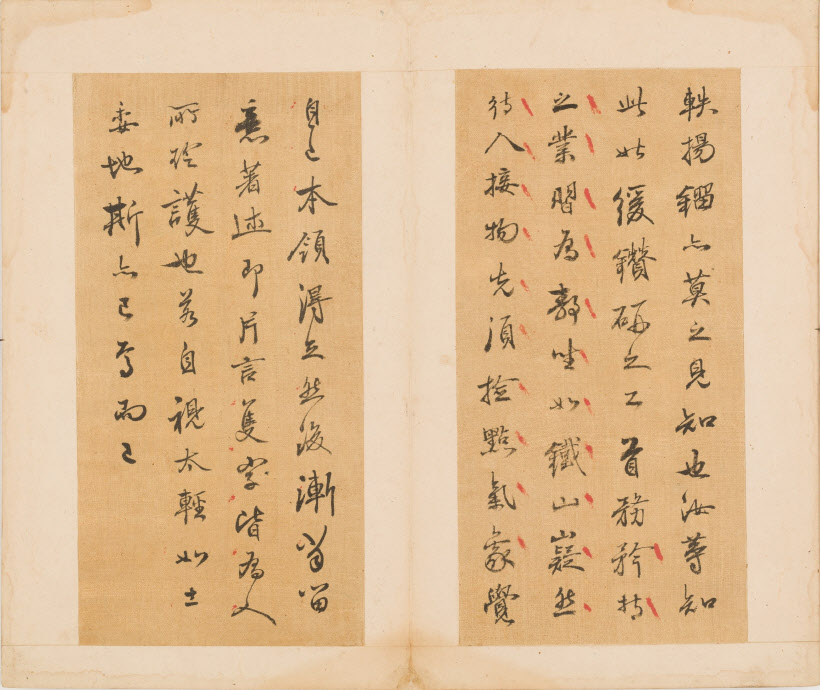 軼揚亦莫之見知也汝等知
此姑緩鑽研之工首務矜持
之業習為靜坐如鐵山嶷然
待人接物先須撿點氣象覺
自己本領得立然後漸當留
意著述即片言隻字皆為人
所珍護也若自視太輕如土
委地斯亦已焉而已